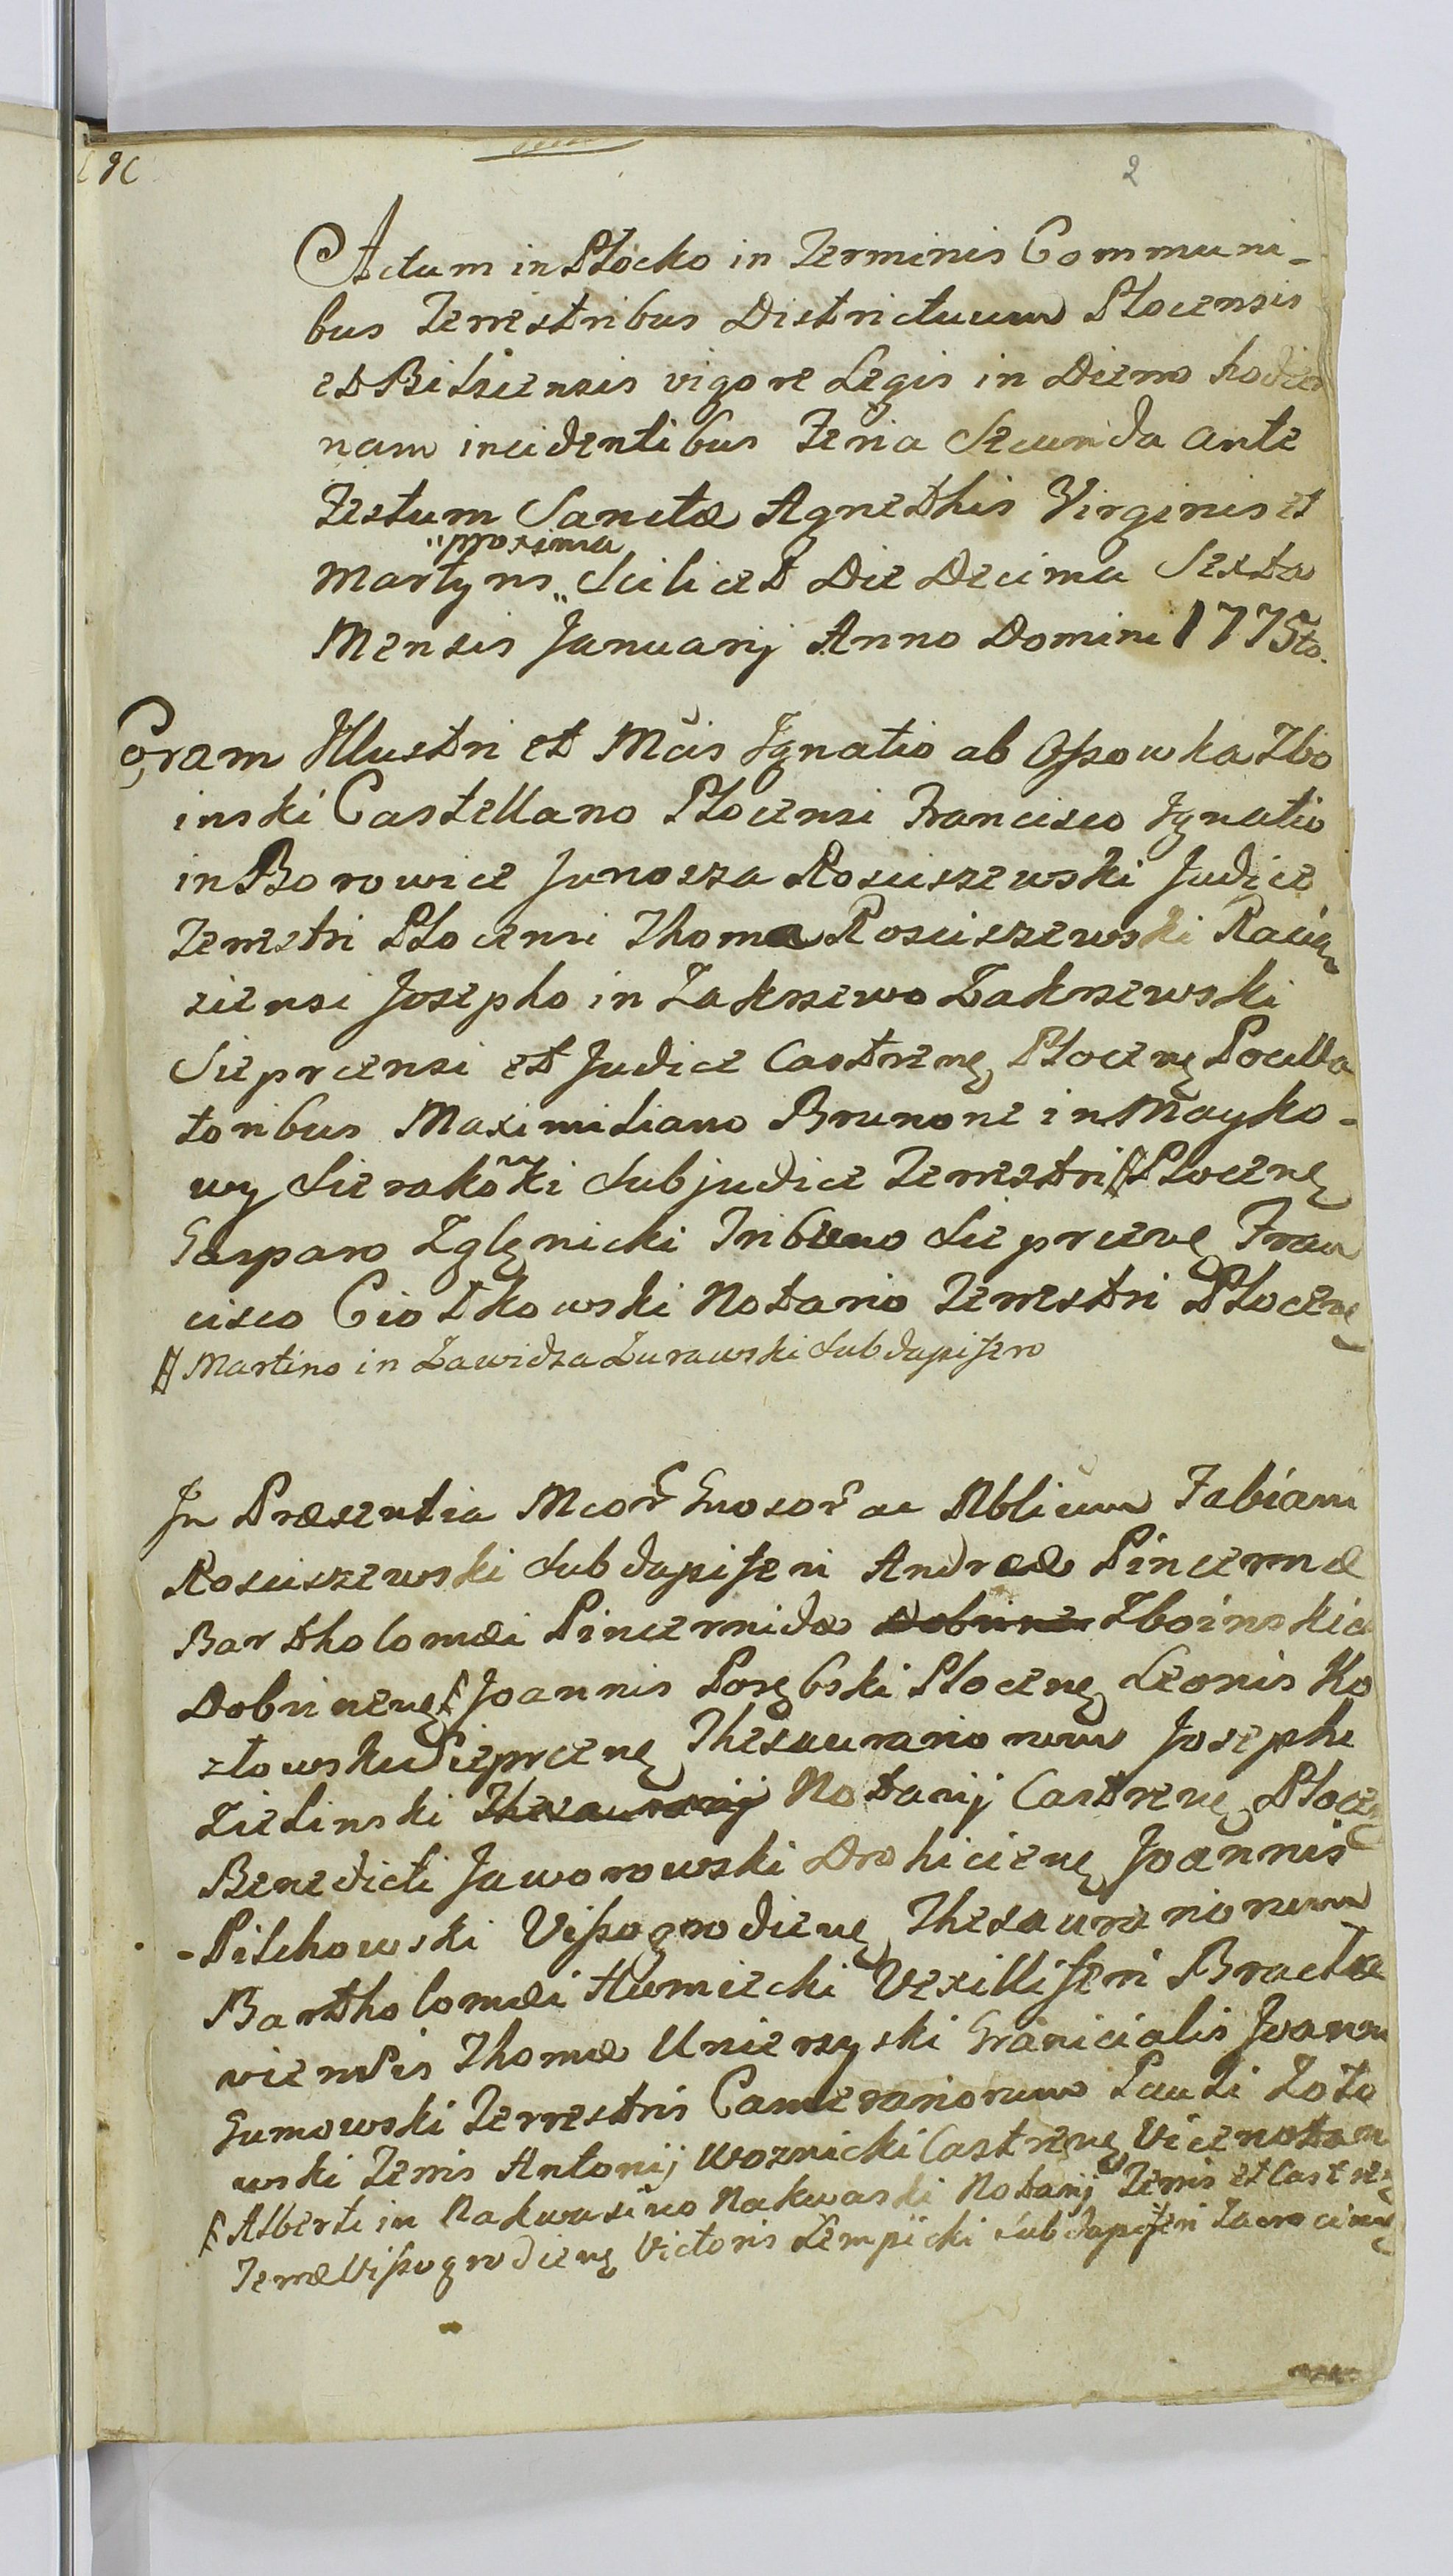 2
Actum in Płocko in Terminis Communi-
bus Terrestribus Districtuum Plocensis
et Bilscensis vigore Legis in Diem hodier
nam incidentibus Feria Secunda ante
Festum Sanctæ Agnethis Virginis et
"proxima
Martyris „ Scilicet Die Decima Sexta
Mensis Januarij Anno Domini 1775to.
Coram Illustri et Mcis Ignatio ab Ossowka Zbo
inski Castellano Plocensi Francisco Ignatio
in Borowice Junosza Rosciszewski Judice
Terrestri Plocensi Thoma Rosciszewski Raciąz
ziensi Josepho in Zakrzewo Zakrzewski
Sieprcensi et Judice Castrenę Plocenę Pocilla
toribus Maximiliano Brunone in Mayko-
wy Sierakōki Subjudice Terrestri # Plocenę
Gasparo Zglenicki Tribuno Sieprcenę Fran
cisco Ciołkowski Notario Terrestri Plocenę
# Martino in Zawidza Zurawski Subdapifero
In Præsentia Mcor̃ Gnosor̃ ac Nblium Fabiani
Rosciszewski Subdapiferi Andreæ Pincernæ
Bartholomæi Pincernidæ Dobrinen Zboinskich
Dobrinenę # Joannis Porębski Plocenę Leonis Ko
złowski Sieprcenę Thesaurariorum Josephi
Zielinski Thesaurarij Notarij Castrenę Plocenę
Benedicti Jaworowski Drohicienę Joannis
Pilchowski Vissogrodienę Thesaurariorum
Bartholomæi Humiecki Vexilliferi Bracła
viensis Thomæ Unierzyski Granicialis Joannis
Gumowski Terrestris Camerariorum Pauli Zoto
wski Terris Antonij Woznicki Castrenę Vicenotar
# Alberti in Nakwasino Nakwaski Notarij Terris et Castrenę
Terræ Vissogrodienę Victoris Lempicki Subdapiferi Zacrocimę